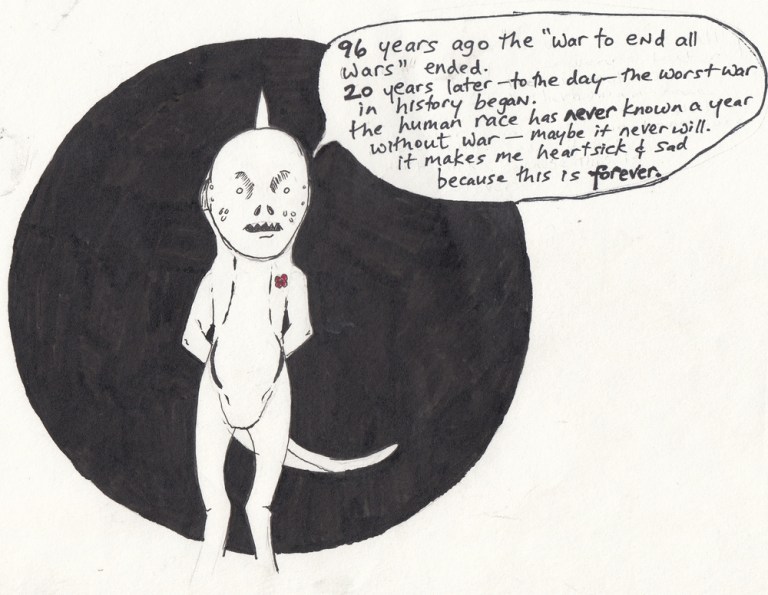 96 years ago the "War to end all
wars" ended.
20 years later—to the day—the worst war
in history began.
the human race has never known a year
without war— maybe it never will.
it makes me heartsick & sad
because this is forever.